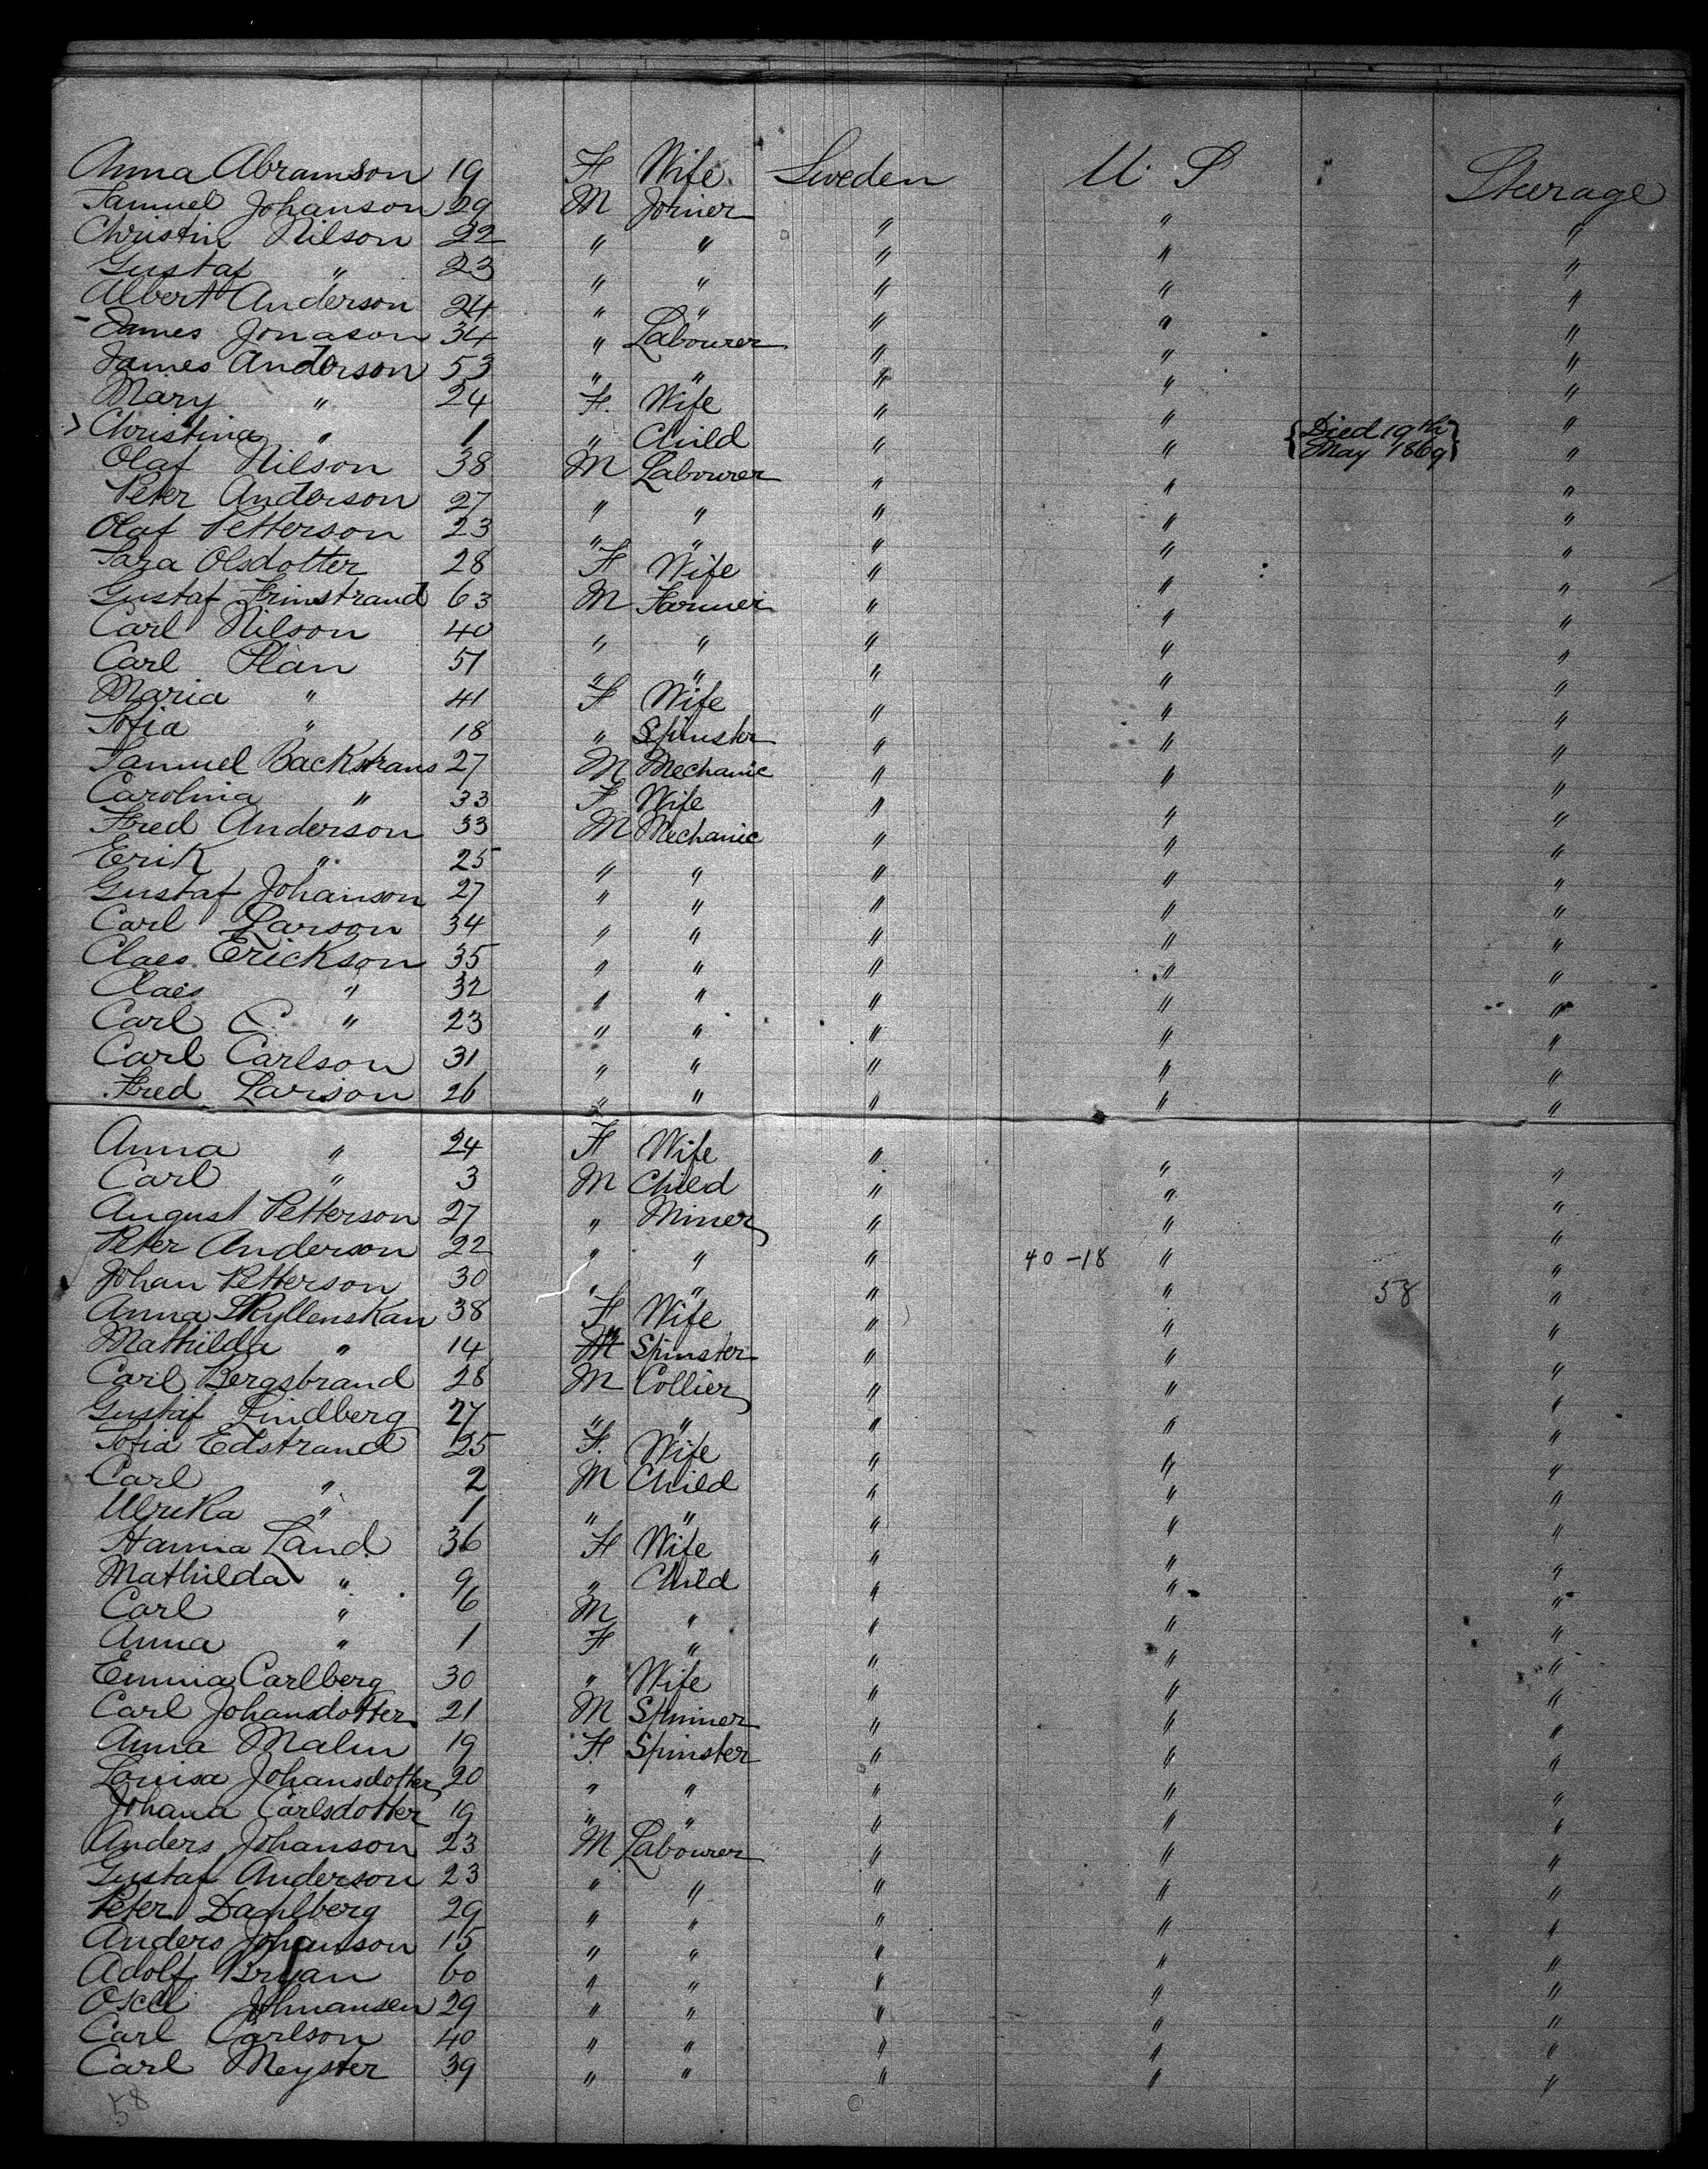 Anna Abramson 19 F Wife Sweden U. S Steerage
Samuel Johanson 29 M Joiner " " "
Christin Nilson 22 " " " " "
Gustaf " 23 " " " " "
Albert Anderson 24 " " " " "
James Jonason 34 " Labourer " " "
James Anderson 53 " " " " "
Mary " 24 F. Wife " " "
Christina " 1 " Child " " {Died 19th May 1869} "
Olaf Nilson 38 M Labourer " " "
Peter Anderson 27 " " " " "
Olaf Petterson 23 " " " " "
Sara Olsdotter 28 F Wife " " "
Gustaf Frinstrand 63 M Farmer " " "
Carl Nilson 40 " " " " "
Carl Plan 51 " " " " "
Maria " 41 F Wife " " "
Sofia " 18 " Spinster " " "
Samuel Backstrans 27 M Mechanic " " "
Carolina " 33 F Wife " " "
Fred Anderson 33 M Mechanic " " "
Erik " 25 " " " " "
Gustaf Johanson 27 " " " " "
Carl Larson 34 " " " " "
Claes Erickson 35 " " " " "
Claes " 32 " " " " "
Carl C. " 23 " " " " "
Carl Carlson 31 " " " " "
Fred Larison 26 " " " " "
Anna " 24 F Wife " " "
Carl " 3 M Child " " "
August Petterson 27 " Miner " " "
Peter Anderson 22 " " " 40-18 " "
Johan Petterson 30 " " " " 58 "
Anna Skyllenskan 38 F Wife " " "
Mathilda " 14 " Spinster " " "
Carl Bergsbrand 28 M Collier " " "
Gustaf Lindberg 27 " " " " "
Sofia Edstrand 25 F. Wife " " "
Carl " 2 M Child " " "
Ulrika " 1 " " " " "
Hanna Land 36 F Wife " " "
Mathilda " 9 " Child " " "
Carl " 6 M " " " "
Anna " 1 F " " " "
Emma Carlberg 30 " Wife " " "
Carl Johansdotter 21 M Spinner " " "
Anna Malin 19 F. Spinster " " "
Louisa Johansdotter 20 " " " " "
Johana Carlsdotter 19 " " " " "
Anders Johanson 23 M Labourer " " "
Gustaf Anderson 23 " " " " "
Peter Dahlberg 29 " " " " "
Anders Johanson 15 " " " " "
Adolf Bryan 60 " " " " "
Johnansen 29 " " " " "
Carl Carlson 40 " " " " "
Carl Meyster 39 " " " " "
58